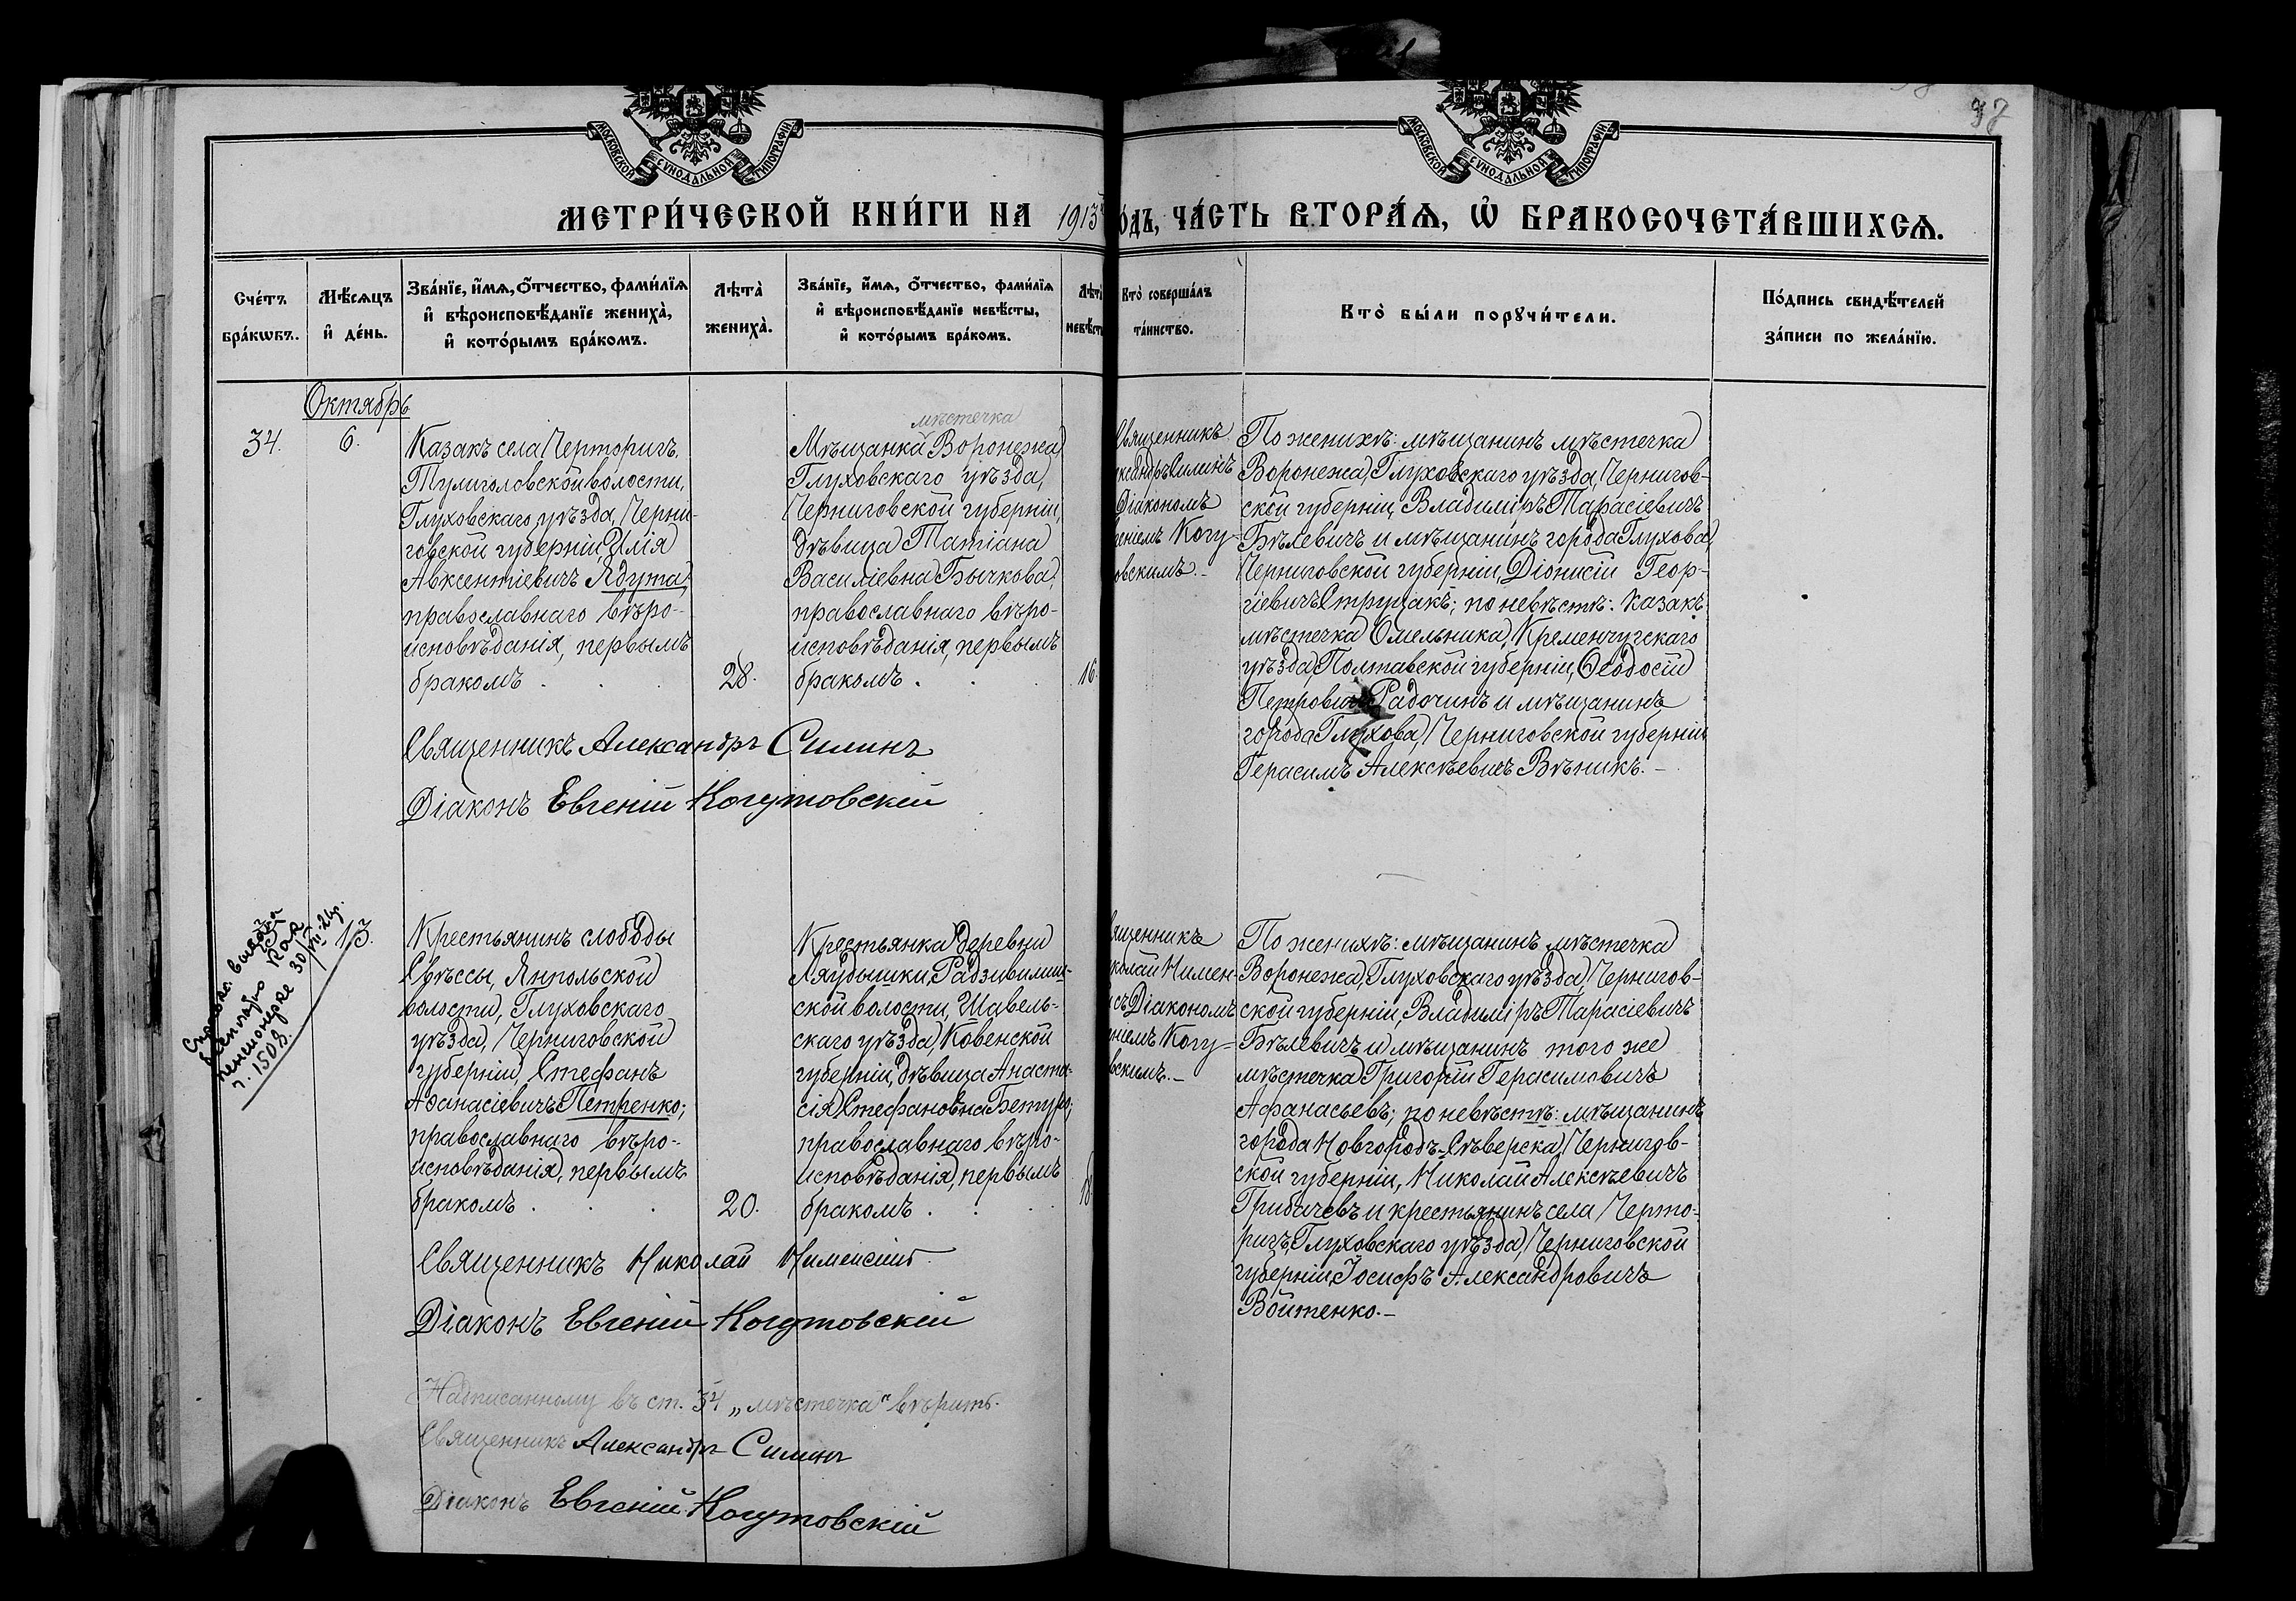 37
МОСКОВСКОЙ СѴНОДАЛЬНОЙ ТИПОГРАФІИ
МОСКОВСКОЙ СѴНОДАЛЬНОЙ ТИПОГРАФІИ
МЕТРИ́ЧЕСКОЙ КНИ́ГИ НА 1913
О́ДЪ, ЧА́СТЬ ВТОРА́Ѧ, Ѽ БРАКОСОЧЕТА́ВШИХСѦ.
Сче́тъ бра́кѡвъ.
Мѣ́сѧцъ и҆ де́нь.
Зва́нїе, и҆́мѧ, ѻ҆́тчество, фами́лїѧ
и҆ вѣроисповѣ́данїе жениха̀,
и҆ кото́рымъ бра́комъ.
Лѣта̀ жениха̀.
Зва́нїе, и҆́мѧ, ѻ҆́тчество, фами́лїѧ
и҆ вѣроисповѣ́данїе невѣ́сты,
и҆ кото́рымъ бра́комъ.
Лѣта̀ невѣ́сты
Кто̀ соверша́лъ
та́инство.
Кто̀ бы́ли порꙋчи́тели.
По́дпись свидѣ́телей
за́писи по жела́нїю.
Октябрь
34.
6.
Казакъ села Черторигъ,
Тулиголовской волости,
Глуховскаго уѣзда, Черни-
говской губерніи, Илія
Авксентіевичъ Ядута,
православнаго вѣро-
исповѣданія, первымъ
бракомъ . . .
28.
мѣстечка
Мѣщанка Воронежа,
Глуховскаго уѣзда,
Черниговской губерніи,
дѣвица Татіана
Василіевна Бычкова,
православнаго вѣро-
исповѣданія, первымъ
бракомъ . . .
16.
Священникъ
ександръ Силинъ
Діакономъ
геніемъ Когу-
овскимъ.-
По женихѣ: мѣщанинъ мѣстечка
Воронежа, Глуховскаго уѣзда, Чернигов-
ской губерніи, Владиміръ Тарасіевичъ
Бѣлевичъ и мѣщанинъ города Глухова,
Черниговской губерніи, Діонисій Геор-
гіевичъ Стрцпакъ; по невѣстѣ: казакъ
мѣстечка Омельника, Кременчугскаго
уѣзда, Полтавской губерніи, Ѳеодосій
Петровичъ Радочинъ и мѣщанинъ
города Глухова, Черниговской губерніи
Герасимъ Алексѣевичъ Вѣникъ.-
Священникъ Александръ Силинъ
Діаконъ Евгеній Когутовскій
13.
ч. 1508.
Крестьянинъ слободы
Свѣссы, Ямпольской
волости, Глуховскаго
уѣзда, Черниговской
губерніи, Стефанъ
Аѳанасіевичъ Петренко;
православнаго вѣро-
исповѣданія, первымъ
бракомъ . . .
20.
Крестьянка деревни
Ляубышки, Радзивилиш-
ской волости, Шавель-
скаго уѣзда, Ковенской
губерніи, дѣвица Анаста-
сія Стефановна
православнаго вѣро-
исповѣданія, первымъ
бракомъ . . .
18
ященникъ
колай Нимен-
съ Діакономъ
ніемъ Когу-
вскимъ.-
По женихѣ: мѣщанинъ мѣстечка
Воронежа, Глуховскаго уѣзда, Чернигов-
ской губерніи, Владиміръ Тарасіевичъ
Бѣлевичъ и мѣщанинъ того же
мѣстечка Григорій Герасимовичъ
Афанасьевъ; по невѣстѣ: мѣщанинъ
города Новгородъ-Сѣверска, Чернигов-
ской губерніи, Николай Алексѣевичъ
Грибачевъ и крестьянинъ села Черто-
ригъ, Глуховскаго уѣзда, Черниговской
губерніи, Іосифъ Александровичъ
Войтенко.-
Священникъ Николай
Діаконъ Евгеній Когутовскій
Надписанному въ ст. 34 „мѣстечка" вѣрить.
Священникъ Александръ Силинъ
Діаконъ Евгеній Когутовскій